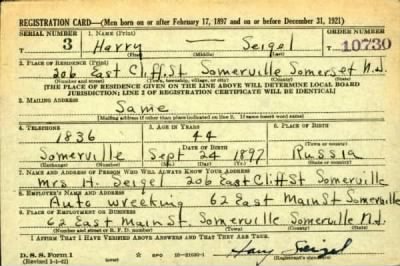 REGISTRATION CARD—(Men born on or after February 17, 1897 and on or before December 31, 1921)
SERIAL NUMBER 1. NAME (Print) ORDER NUMBER
3 Harry — Seigel 10730
(First) (Middle) (Last)
2. PLACE OF RESIDENCE (Print)
206 East Cliff St. Somerville Somerset N.J.
(Number and street) (Town, township, village, or city) (County) (State)
[THE PLACE OF RESIDENCE GIVEN ON THE LINE ABOVE WILL DETERMINE LOCAL BOARD
JURISDICTION; LINE 2 OF REGISTRATION CERTIFICATE WILL BE IDENTICAL]
3. MAILING ADDRESS
Same
[Mailing address if other than place indicated on line 2. If same insert word same]
4. TELEPHONE 5. AGE IN YEARS 6. PLACE OF BIRTH
1836 44
DATE OF BIRTH (Town or county)
Somerville Sept 24 1897 Russia
(Exchange) (Number) (Mo.) (Day) (Yr.) (State or country)
7. NAME AND ADDRESS OF PERSON WHO WILL ALWAYS KNOW YOUR ADDRESS
Mrs H. Seigel 206 East Cliff St Somerville
8. EMPLOYER'S NAME AND ADDRESS
Auto wrecking 62 East Main St Somerville
9. PLACE OF EMPLOYMENT OR BUSINESS
62 East Main St. Somerville Somerville N.J.
(Number and street or R. F. D. number) (Town) (County) (State)
I AFFIRM THAT I HAVE VERIFIED ABOVE ANSWERS AND THAT THEY ARE TRUE.
D. S. S. Form 1
(Revised 1-1-42) (over) GPO 16—21630-1
Harry Seigel